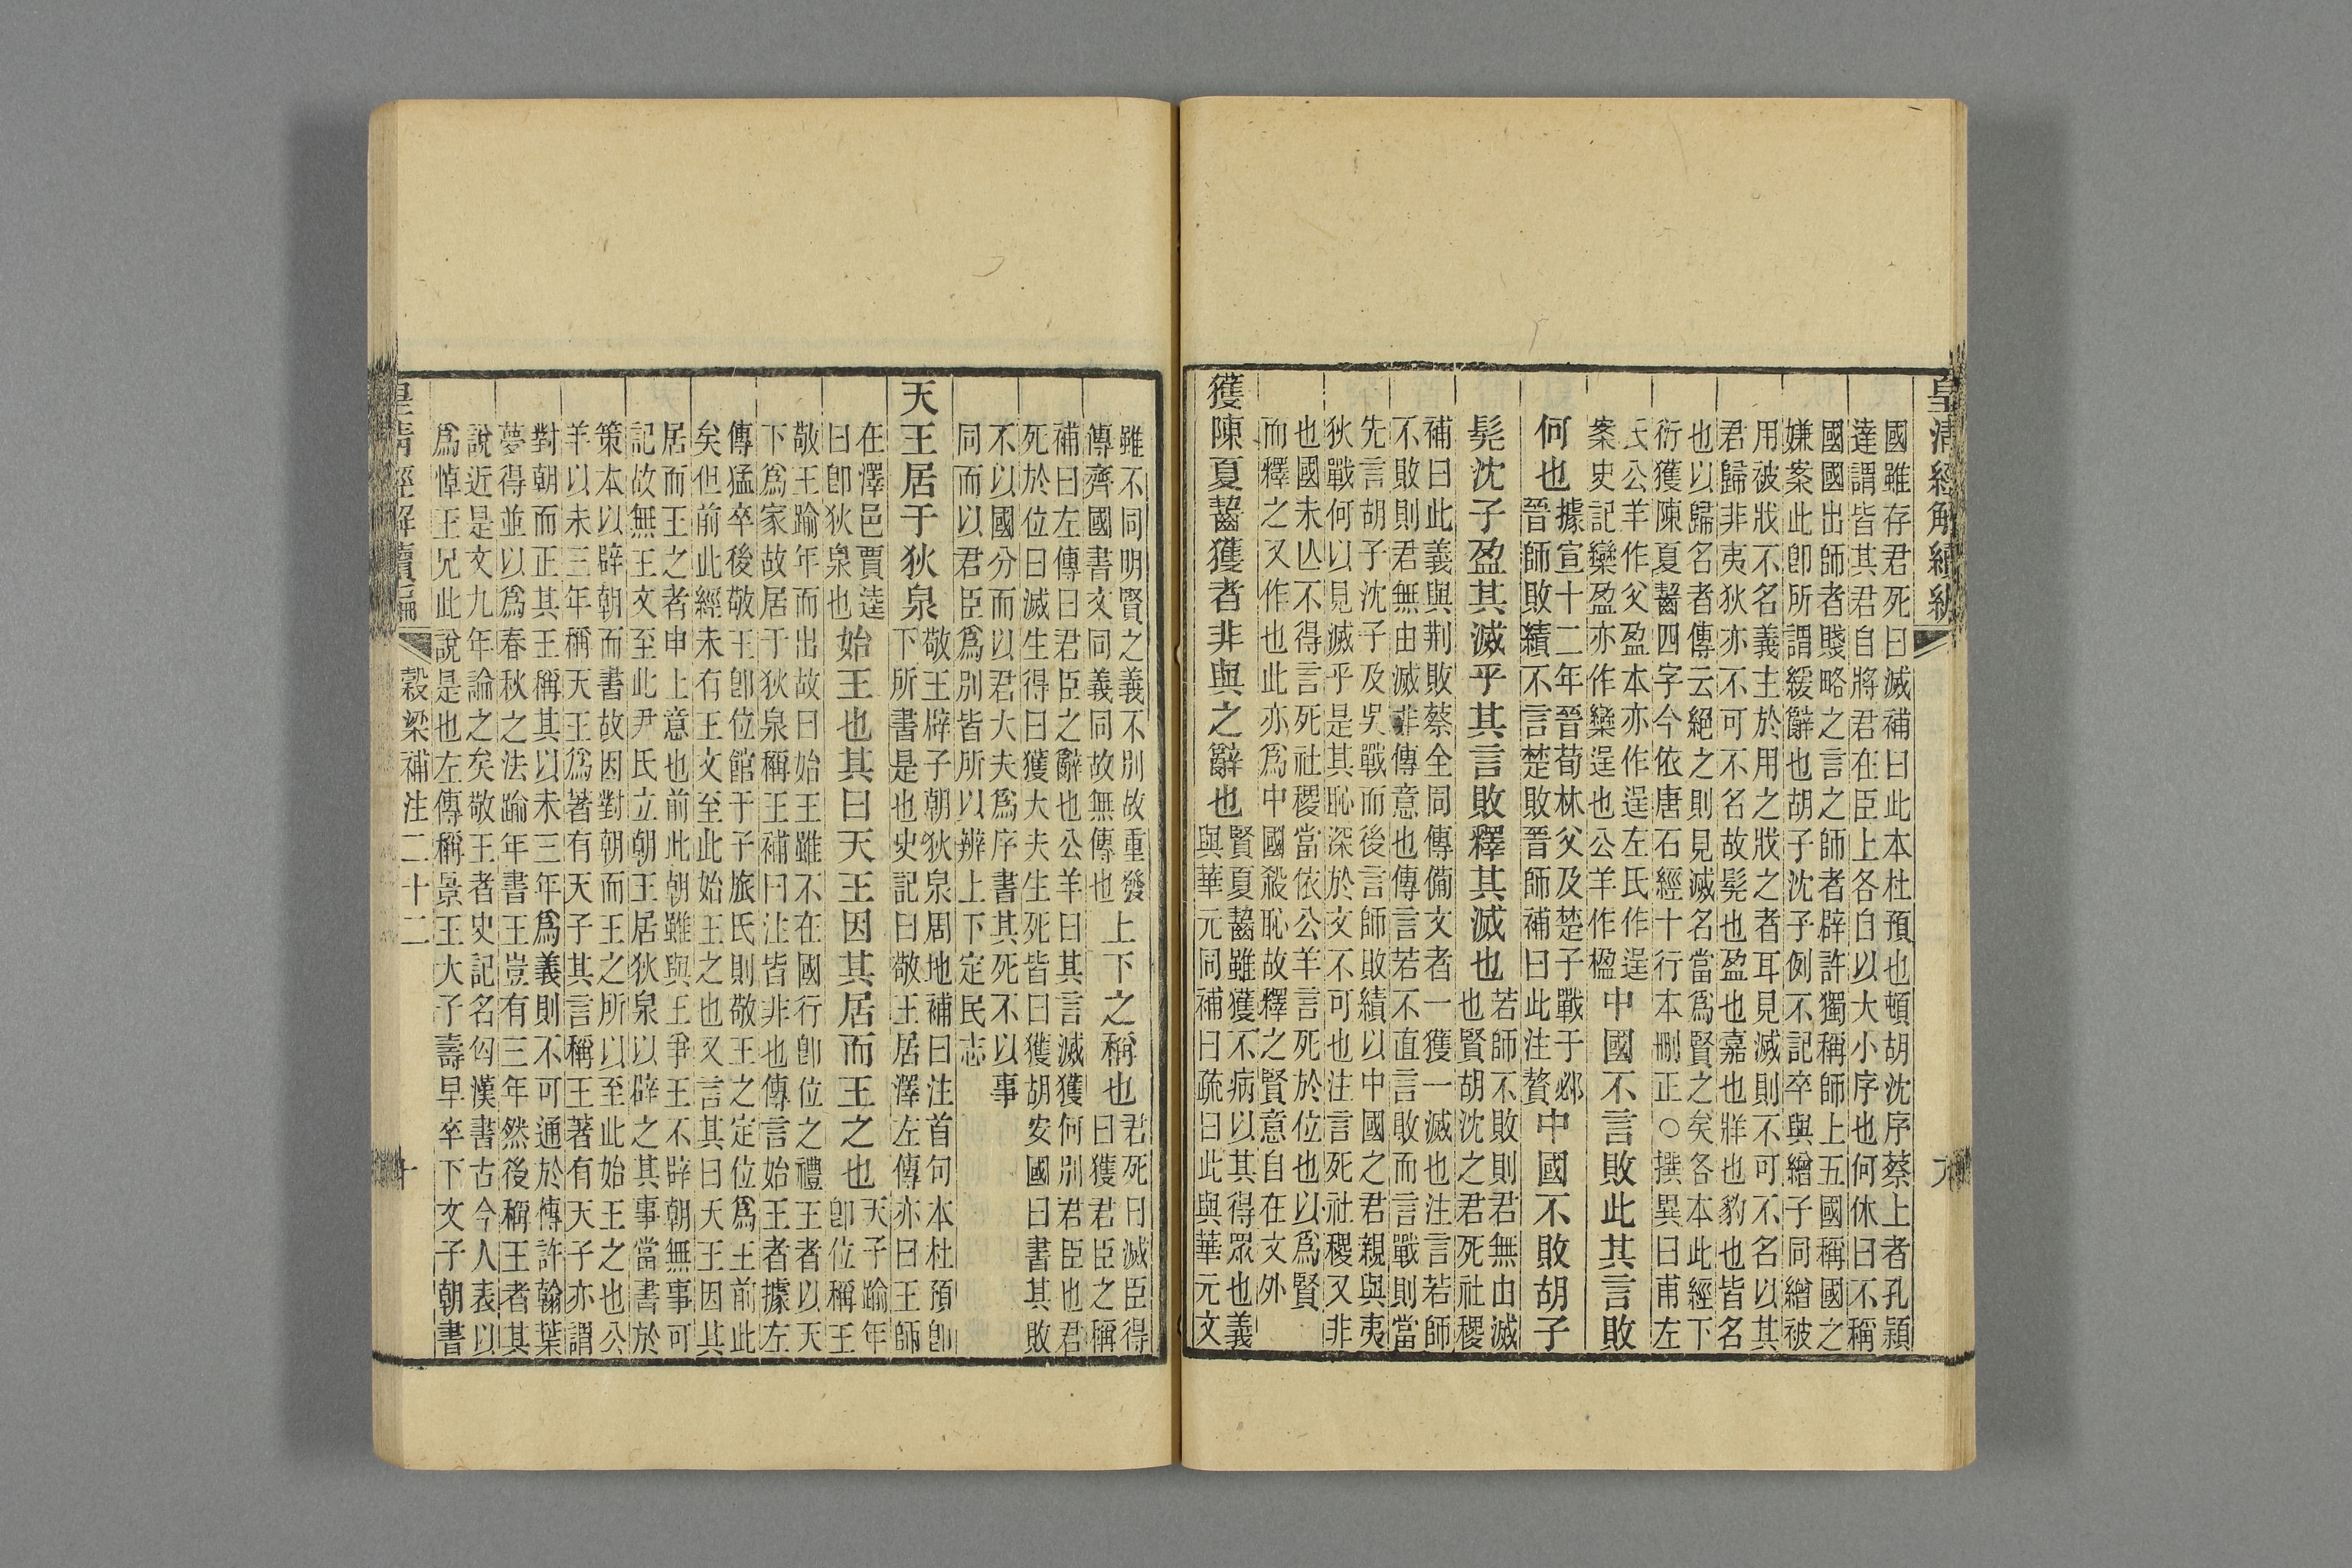 皇清經解續編
國雖存君死曰滅補曰此本杜預也頓胡沈序蔡上者孔頴
達謂皆其君自將君在臣上各自以大小序也何休曰不稱
國國出師者賤略之言之師者辟許獨稱師上五國稱國之
嫌案此卽所謂緩辭也胡子沈子例不記卒與繒子同繒被
用被戕不名義主於用之戕之者耳見滅則不可不名以其
君歸非夷狄亦不可不名故髡也盈也嘉也牂也豹也皆名
也以歸名者傳云絕之則見滅名當爲賢之矣各本此經下
衍獲陳夏齧四字今依唐石經十行本刪正○撰異曰甫左
氏公羊作父盈本亦作逞左氏作逞
案史記欒盈亦作欒逞也公羊作楹
中國不言敗此其言敗
何也
據宣十二年晉荀林父及楚子戰于邲
晉師敗績不言楚敗晉師補曰此注贅
中國不敗胡子
髡沈子盈其滅乎其言敗釋其滅也
若師不敗則君無由滅
也賢胡沈之君死社稷
補曰此義與荆敗蔡全同傳僃文者一獲一滅也注言若師
不敗則君無由滅非傳意也傳言若不直言敗而言戰則當
先言胡子沈子及吳戰而後言師敗績以中國之君親與夷
狄戰何以見滅乎是其恥深於文不可也注言死社稷又非
也國未亾不得言死社稷當依公羊言死於位也以爲賢
而釋之又作也此亦爲中國殺恥故釋之賢意自在文外
獲陳夏齧獲者非與之辭也
賢夏齧雖獲不病以其得眾也義
與華元同補曰疏曰此與華元文
雖不同明賢之義不別故重發
傳齊國書文同義同故無傳也
上下之稱也
君死曰滅臣得
曰獲君臣之稱
補曰左傳曰君臣之辭也公羊曰其言滅獲何別君臣也君
死於位曰滅生得曰獲大夫生死皆曰獲胡安國曰書其敗
不以國分而以君大夫爲序書其死不以事
同而以君臣爲別皆所以辨上下定民志
天王居于狄泉
敬王辟子朝狄泉周地補曰注首句本杜預卽
下所書是也史記曰敬王居澤左傳亦曰王師
在澤邑賈逵
曰卽狄泉也
始王也其曰天王因其居而王之也
天子踰年
卽位稱王
敬王踰年而出故曰始王雖不在國行卽位之禮王者以天
下爲家故居于狄泉稱王補曰注皆非也傳言始王者據左
傳猛卒後敬王卽位館于子旅氏則敬王之定位爲王前此
矣但前此經未有王文至此始王之也又言其曰天王因其
居而王之者申上意也前此朝雖與王爭王不辟朝無事可
記故無王文至此尹氏立朝王居狄泉以辟之其事當書於
策本以辟朝而書故因對朝而王之所以至此始王之也公
羊以未三年稱天王爲著有天子其言稱王著有天子亦謂
對朝而正其王稱其以未三年爲義則不可通於傳許翰葉
夢得並以爲春秋之法踰年書王豈有三年然後稱王者其
說近是文九年論之矣敬王者史記名匄漢書古今人表以
爲悼王兄此說是也左傳稱景王大子壽早卒下文子朝書
皇清經解續編
穀梁補注二十二
十